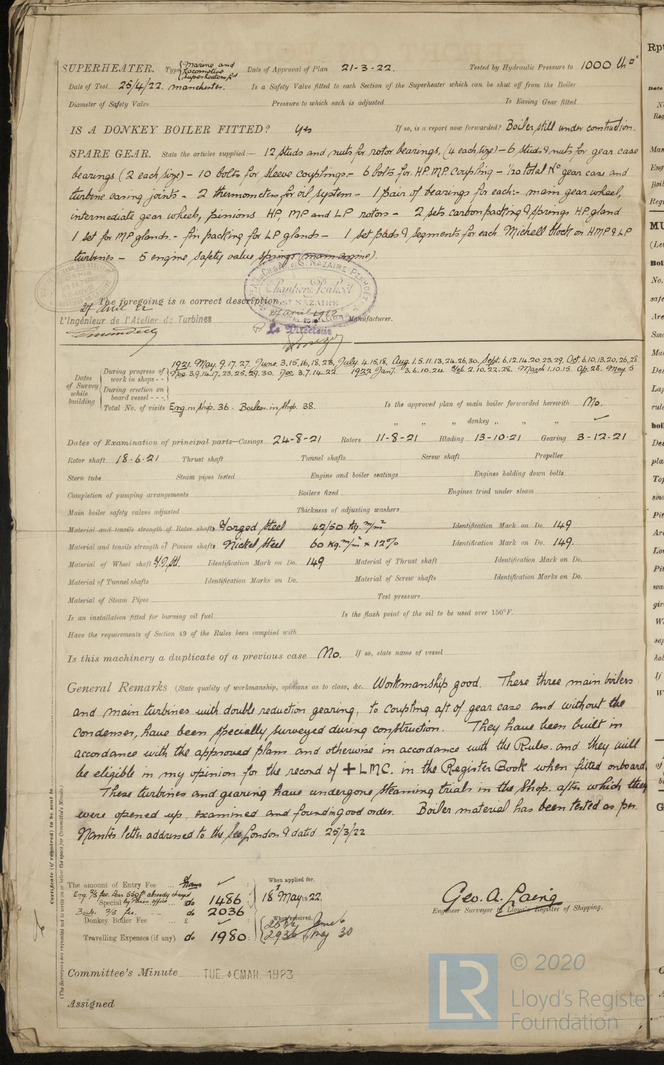 SUPERHEATER. Type {Marine and Locomotive Superheaters Ld Date of Approval of Plan 21-3-22. Tested by Hydraulic Pressure to 1000 lbs
Date of Test 25/4/22. Manchester. Is a Safety Valve fitted to each Section of the Superheater which can be shut off from the Boiler
Diameter of Safety Valve Pressure to which each is adjusted Is Easing Gear fitted
IS A DONKEY BOILER FITTED? Yes If so, is a report now forwarded? Boiler still under construction.
SPARE GEAR. State the articles supplied:— 12 studs and nuts for rotor bearings, (4 each size) - 6 studs & nuts for gear case
bearings (2 each size) - 10 bolts for sleeve couplings - 6 bolts for HP.MP. Coupling - 1/20 total No gear case and
turbine casing joints - 2 thermometers for oil system - 1 pair of bearings for each:- main gear wheel,
intermediate gear wheel, pinions HP MP and LP rotors - 2 sets carbon packing & springs HP gland
1 set for MP glands - fin packing for LP glands - 1 set pads & segments for each Michell block on HMP & LP
turbines - 5 engine safety valve springs (main engine).
The foregoing is a correct description,
27 avril 22
L'Ingénieur de l'Atelier de Turbines
Chantiers
St NAZAIRE
Manufacturer.
Le Directeur
Dates of Survey while building
During progress of work in shops - - 1921. May. 9. 17. 27. June. 3, 15, 16, 18, 28. July. 4. 15. 18. Aug. 1. 5. 11. 13. 24. 26. 30. Sept. 6. 12. 14. 20. 23. 29. Oct. 6. 10. 13. 20. 26. 28
Nov 3. 9. 14. 17. 23. 25. 29. 30. Dec 3. 7. 14. 22. 1922 Jan 7. 3. 6. 10. 24. Feb 2. 10. 22. 28. March 1. 10. 15. Ap. 28. May 5
During erection on board vessel - - -
Total No. of visits Eng in shop. 36. Boiler in shop. 38. Is the approved plan of main boiler forwarded herewith No.
" " " donkey " " "
Dates of Examination of principal parts—Casings 24-8-21 Rotors 11-8-21 Blading 13-10-21 Gearing 3-12-21
Rotor shaft 18-6-21 Thrust shaft Tunnel shafts Screw shaft Propeller
Stern tube Steam pipes tested Engine and boiler seatings Engines holding down bolts
Completion of pumping arrangements Boilers fixed Engines tried under steam
Main boiler safety valves adjusted Thickness of adjusting washers
Material and tensile strength of Rotor shafts Forged Steel 42/50 Kg. m/m² Identification Mark on Do. 149
Material and tensile strength of Pinion shafts Nickel Steel 60 Kg. m/m² × 12% Identification Mark on Do. 149.
Material of Wheel shaft Identification Mark on Do. 149 Material of Thrust shaft Identification Mark on Do.
Material of Tunnel shafts Identification Marks on Do. Material of Screw shafts Identification Marks on Do.
Material of Steam Pipes Test pressure
Is an installation fitted for burning oil fuel Is the flash point of the oil to be used over 150°F.
Have the requirements of Section 49 of the Rules been complied with
Is this machinery a duplicate of a previous case No. If so, state name of vessel
General Remarks (State quality of workmanship, opinions as to class, &c. Workmanship good. These three main boilers
and main turbines with double reduction gearing, to coupling aft of gear case and without the
condenser, have been specially surveyed during construction. They have been built in
accordance with the approved plans and otherwise in accordance with the Rules. and they will
be eligible in my opinion for the record of + LMC. in the Register Book when fitted onboard
These turbines and gearing have undergone steaming trials in the shop. after which they
were opened up, examined and found in good order. Boiler material has been tested as per
Nantes letter addressed to the London & dated. 25/3/22
The amount of Entry Fee ...
Special do 1486
do 2036
Donkey Boiler Fee ... £
Travelling Expenses (if any) do 1980
When applied for, 18th May 22.
When received,
Geo. A. Laing
Engineer Surveyor to Lloyd's Register of Shipping.
Committee's Minute TUE. 4 MAR. 1923
Assigned
© 2020
LR Lloyd's Register
Foundation